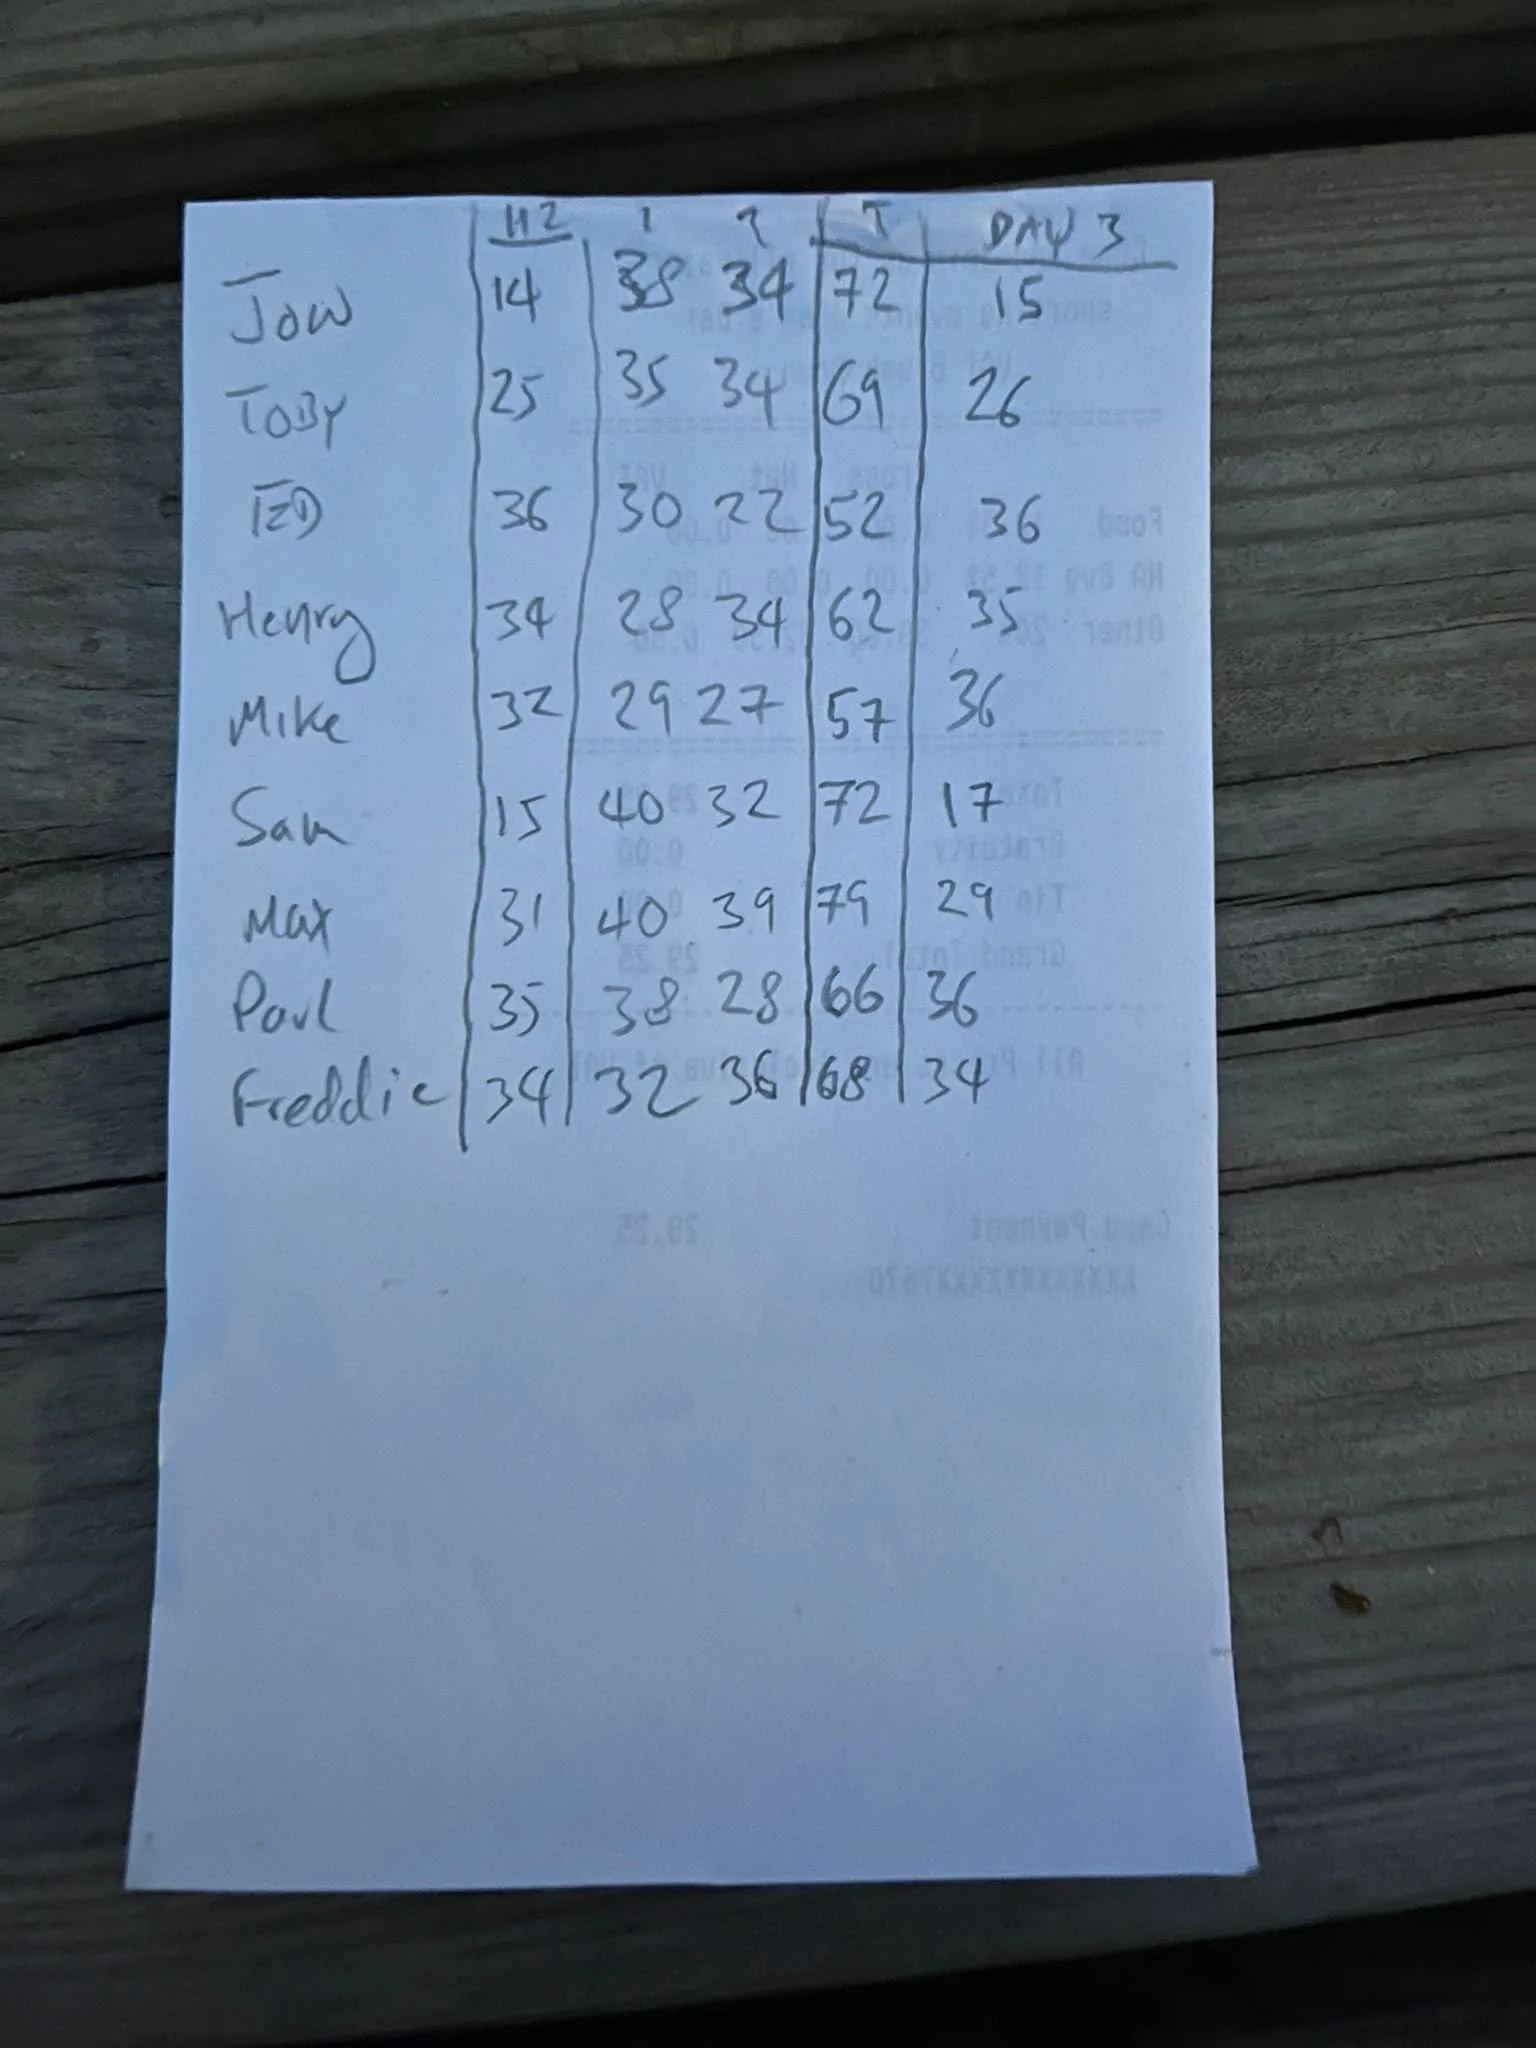 H2 1 2 T DAY 3
Jow 14 38 34 72 15
TOBY 25 35 34 69 26
TED 36 30 22 52 36
Henry 34 28 34 62 35
Mike 32 29 27 57 36
Sam 15 40 32 72 17
Max 31 40 39 79 29
Paul 35 38 28 66 36
Freddie 34 32 36 68 34